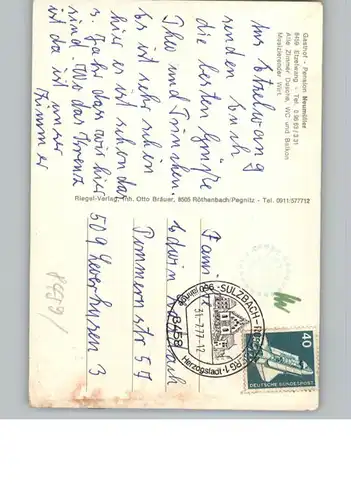 Gasthof - Pension Neumüller
8459 Etzelwang - Tel. 0 96 63/3 31
Alle Zimmer Dusche, WC und Balkon
Musizierender Wirt.
Aus Etzelwang
senden Euch
die besten Grüße
Theo und
Es ist sehr schön
hier es ist schon das
3. Jahr das wir hier
sind. Wo das Kreuz
ist da ist unser
Zimmer
Riegel-Verlag, Inh. Otto Bräuer, 8505 Röthenbach/Pegnitz - Tel. 0911/577712
Familie
Edwin
Pommernstr 57
509 Leverkusen 3
8459/
SULZBACH-ROSENBERG 1
31.-7.77-12
8458
Herzogstadt
40
DEUTSCHE BUNDESPOST